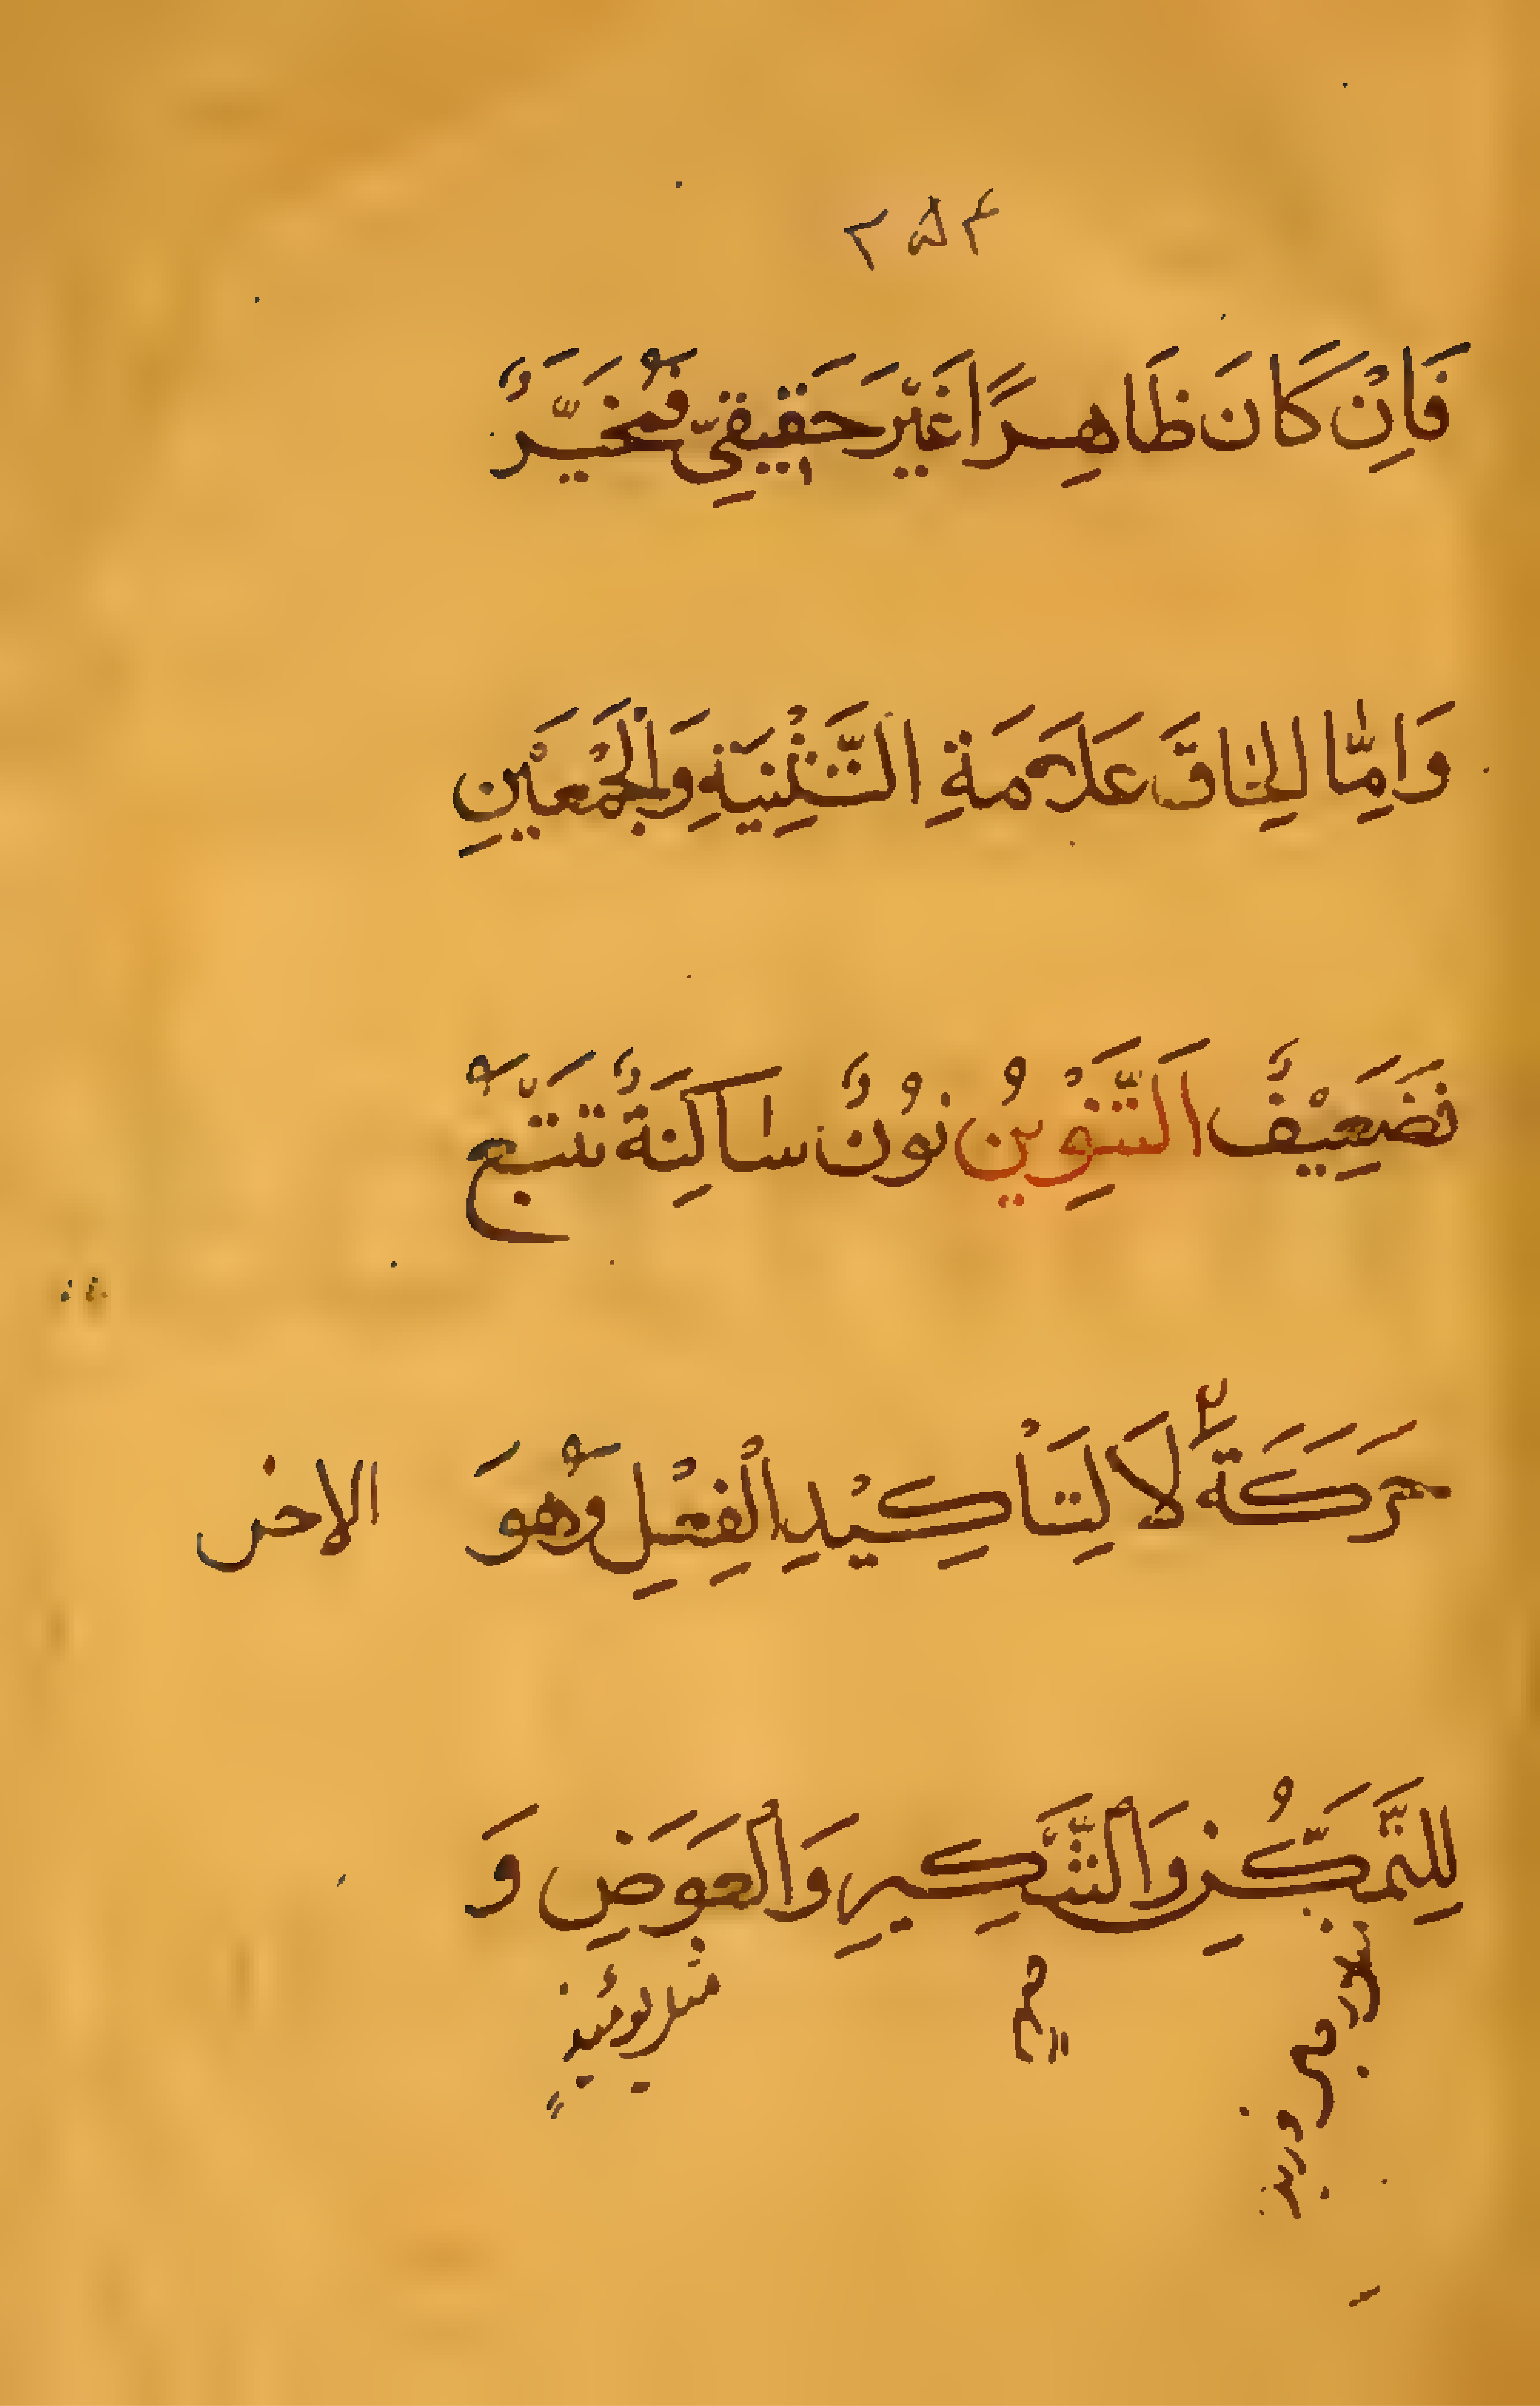 ۲۵۴
فَاِنْ كَانَ ظَاهِرًا غَيْرَ حَقِيقِيٍّ فَمُخَيَّرٌ
وَاَمَّا اِلْحَاقُ عَلَامَةِ التَّثْنِيَةِ وَالْجَمْعَيْنِ
فَضَعِيْفٌ اَلتَّنْوِينُ نُوْنٌ سَاكِنَةٌ تَتَّبِعُ
حَرَكَةَ لَا لِتَأْكِيْدِ الْفِعْلِ وَهُوَ الاخر
لِلتَّمَكُّنِ وَالتَّنْكِيرِ وَالْعِوَضِ وَ
صهٍ
مثل يومئيذٍ